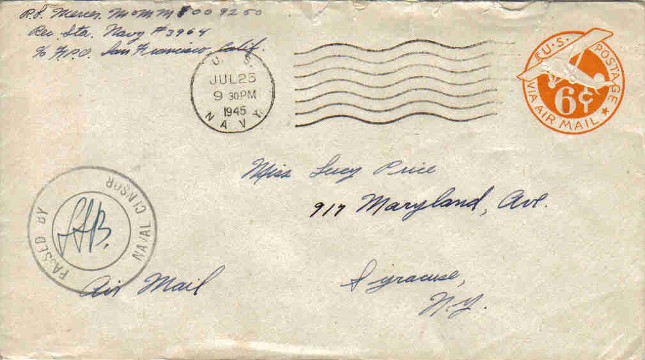 Rec. Sta. Navy #3964
c/o F.P.O. San Francisco, Calif.
U. S.
JUL 23
9 30PM
1945
NAVY
U.S. POSTAGE
6¢
VIA AIR MAIL
Miss Lucy Price
917 Maryland, Ave.
Syracuse,
N.Y.
PASSED BY
NAVAL CENSOR
Air Mail